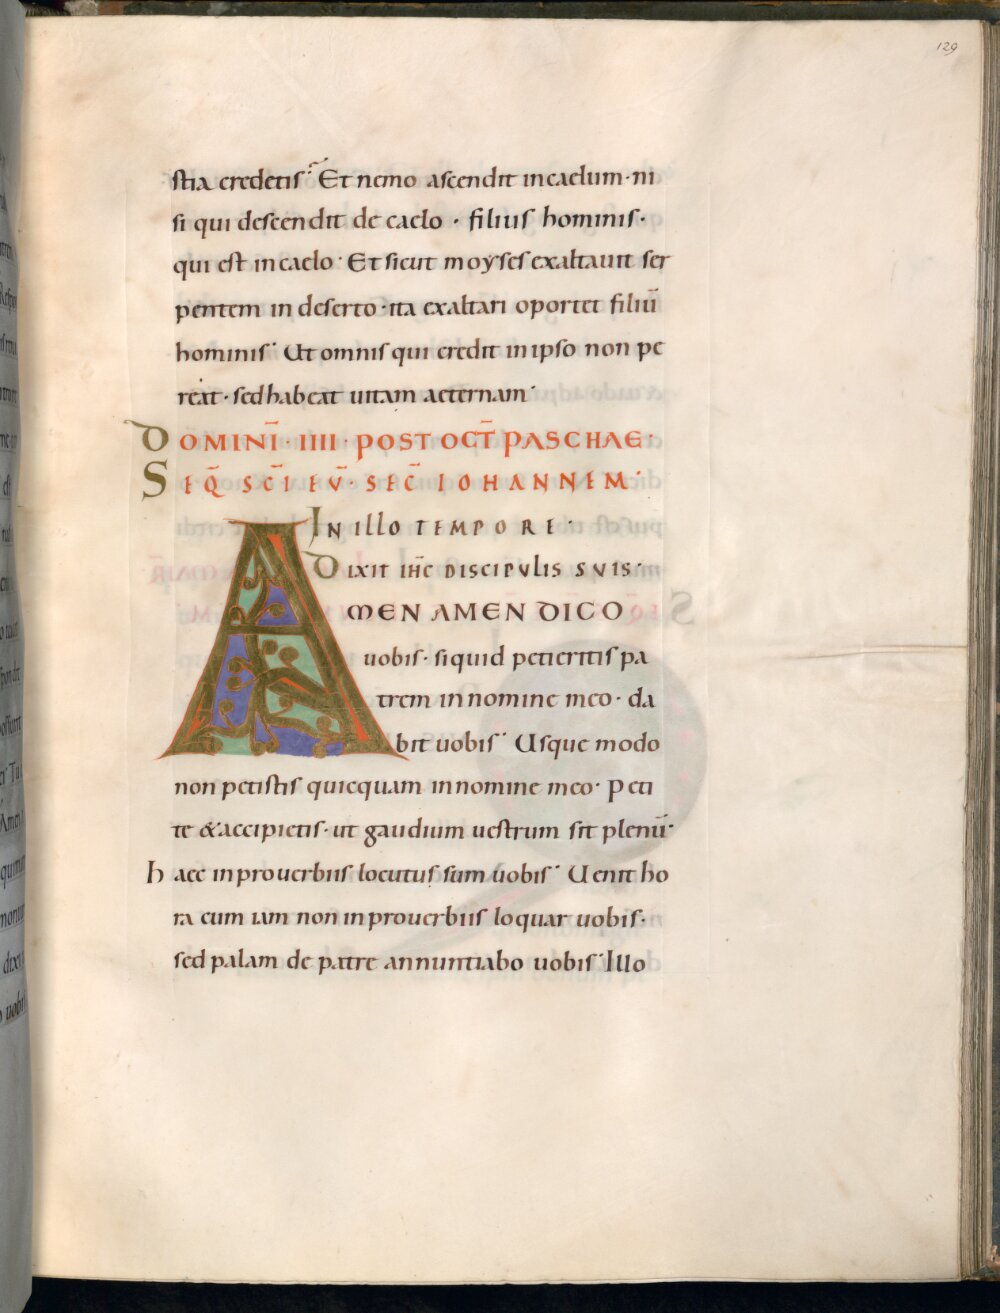 129
stia credetis. Et nemo ascendit in caelum · ni
si qui descendit de caelo · filius hominis ·
qui est in caelo · Et sicut moyses exaltauit ser
pentem in deserto · ita exaltari oportet filiū
hominis · Ut omnis qui credit in ipso non pe
reat · sed habeat uitam aeternam ·
DOMINĪ · IIII · POST OCT̄ PASCHAE ·
SEQ̄ SC̄I EV̄ · SEC̄ IOHANNEM ·
IN ILLO TEMPORE ·
DIXIT IHC̄ DISCIPVLIS SVIS ·
AMEN AMEN DICO
uobis · si quid petieritis pa
trem in nomine meo · da
bit uobis · Usque modo
non petistis quicquam in nomine meo · Peti
te & accipietis · ut gaudium uestrum sit plenū ·
haec in prouerbiis locutus sum uobis · Uenit ho
ra cum iam non in prouerbiis loquar uobis ·
sed palam de patre annuntiabo uobis · Illo